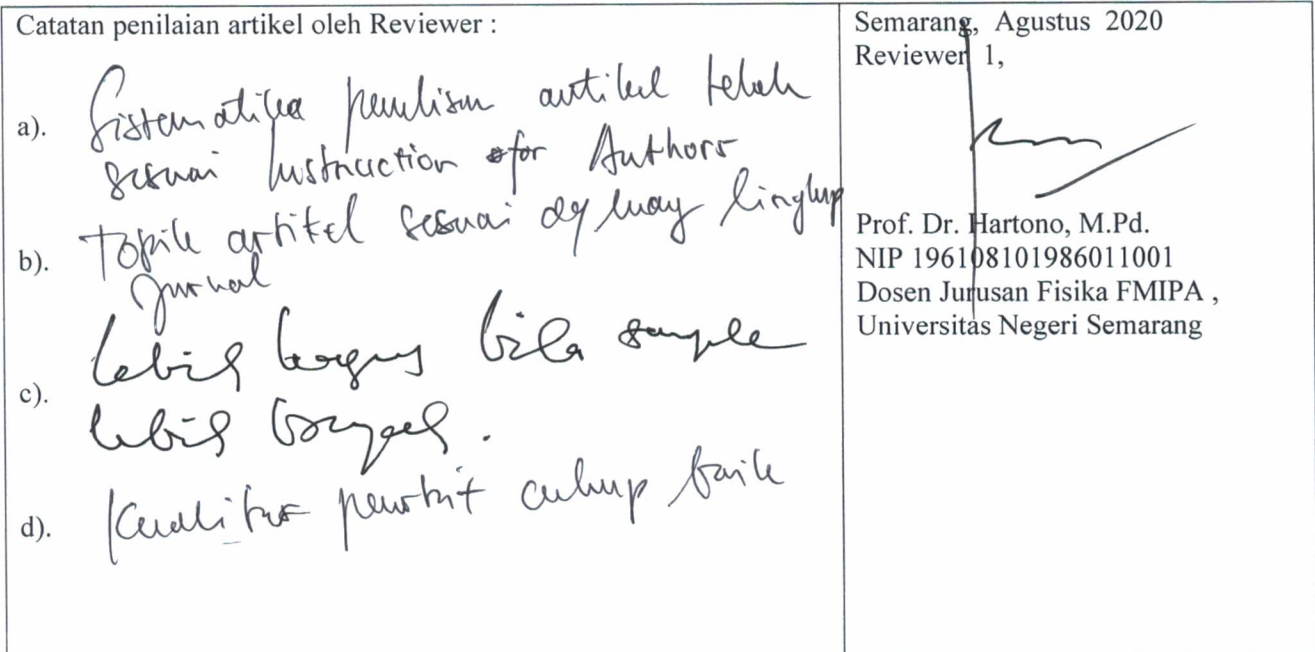 Catatan penilaian artikel oleh Reviewer :
a). Sistematika penulisan artikel telah
sesuai Instruction for Authors
b). Topik artikel sesuai dg ruang lingkup
jurnal
c). lebih bagus bila sample
lebih banyak.
d). Kualitas penerbit cukup baik
Semarang, Agustus 2020
Reviewer 1,
Prof. Dr. Hartono, M.Pd.
NIP 196108101986011001
Dosen Jurusan Fisika FMIPA ,
Universitas Negeri Semarang